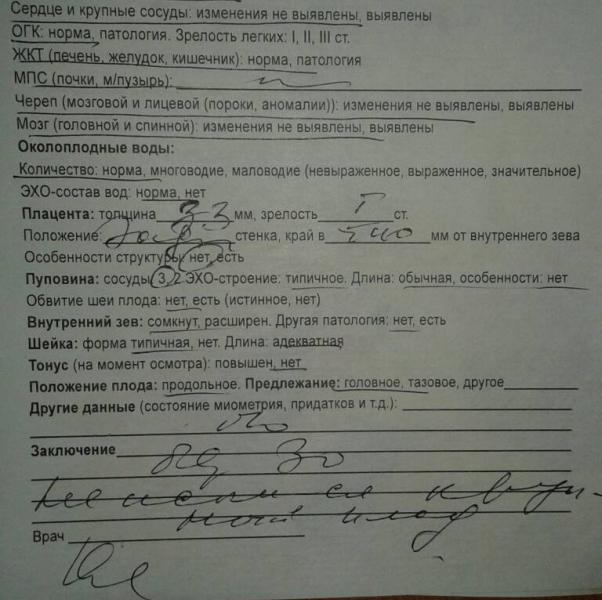 Сердце и крупные сосуды: изменения не выявлены, выявлены
ОГК: норма, патология. Зрелость легких: I, II, III ст.
ЖКТ (печень, желудок, кишечник): норма, патология
МПС (почки, м/пузырь):
Череп (мозговой и лицевой (пороки, аномалии)): изменения не выявлены, выявлены
Мозг (головной и спинной): изменения не выявлены, выявлены
Околоплодные воды:
Количество: норма, многоводие, маловодие (невыраженное, выраженное, значительное)
ЭХО-состав вод: норма, нет
Плацента: толщина 33 мм, зрелость I ст.
Положение: стенка, край в мм от внутреннего зева
Особенности структуры: нет, есть
Пуповина: сосуды 3, 2 ЭХО-строение: типичное. Длина: обычная, особенности: нет
Обвитие шеи плода: нет, есть (истинное, нет)
Внутренний зев: сомкнут, расширен. Другая патология: нет, есть
Шейка: форма типичная, нет. Длина: адекватная
Тонус (на момент осмотра): повышен, нет
Положение плода: продольное. Предлежание: головное, тазовое, другое
Другие данные (состояние миометрия, придатков и т.д.):
Заключение
Врач